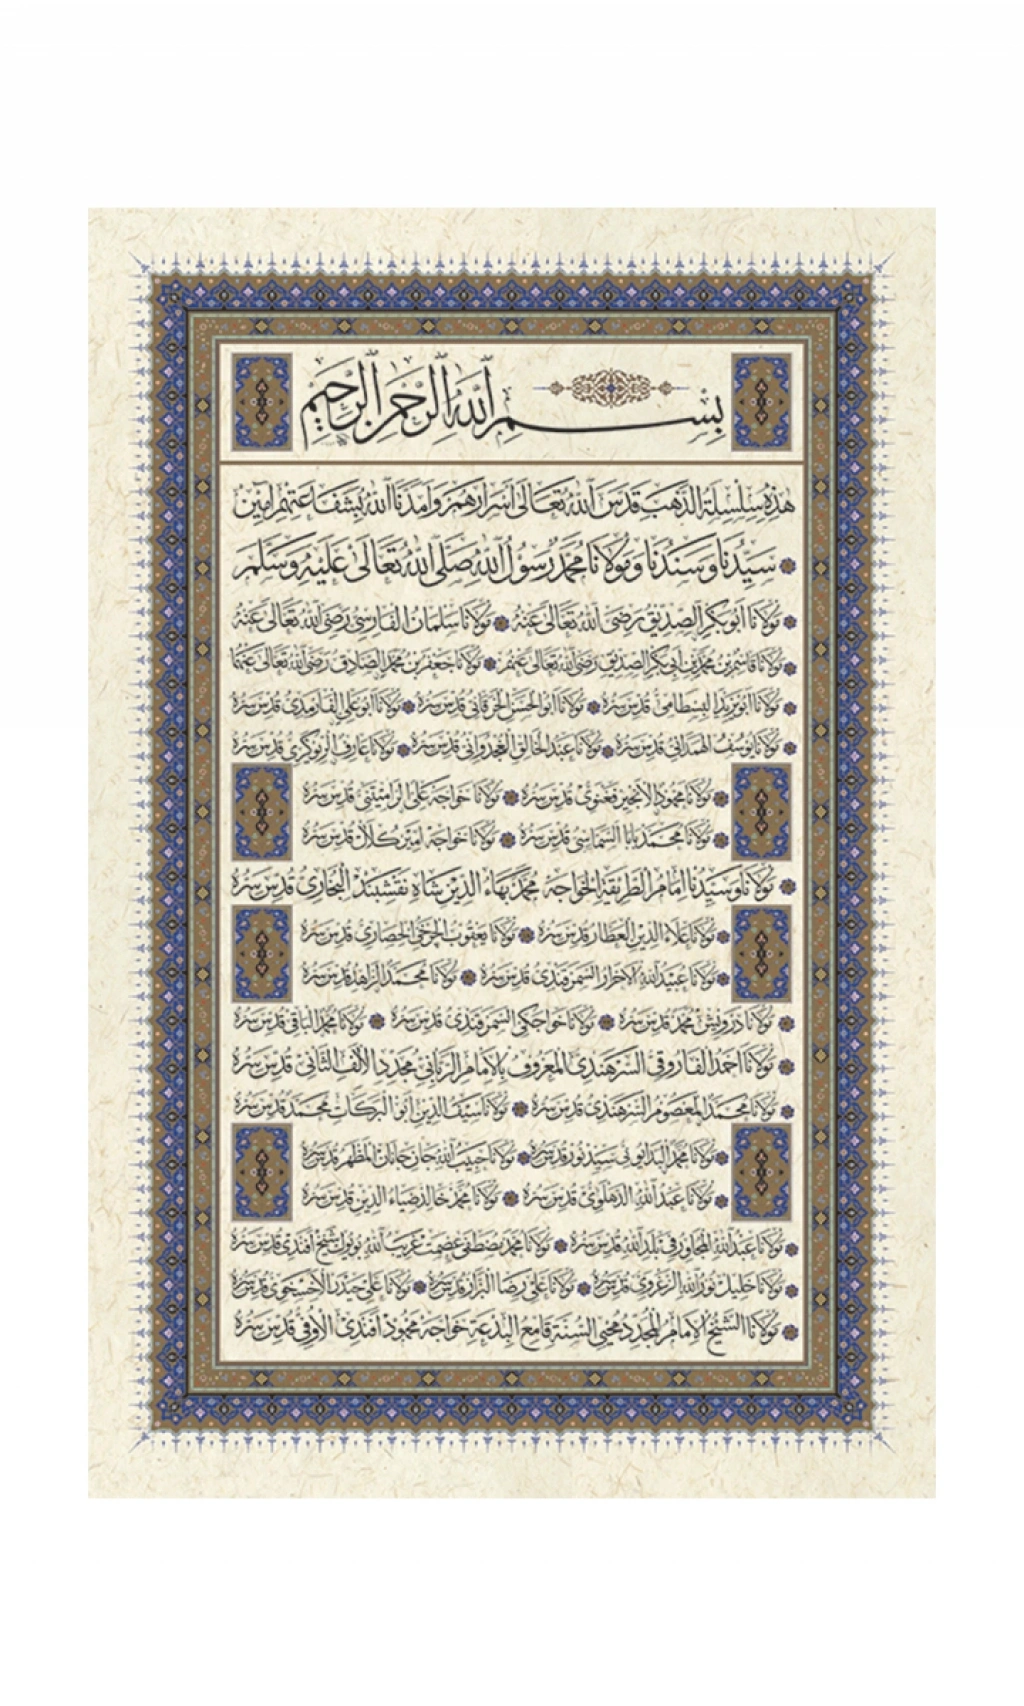 بسم الله الرحمن الرحيم
هذه سلسلة الذهب قدس الله تعالى اسرارهم وامدنا الله بشفاعتهم امين
سيدنا وسندنا ومولانا محمد رسول الله صلى الله تعالى عليه وسلم
مولانا ابو بكر الصديق رضى الله تعالى عنه مولانا سلمان الفارسى رضى الله تعالى عنه
مولانا قاسم بن محمد بن ابى بكر الصديق رضى الله تعالى عنهم مولانا جعفر بن محمد الصادق رضى الله تعالى عنهما
مولانا ابو يزيد البسطامى قدس سره مولانا ابو الحسن الخرقانى قدس سره مولانا ابو على الفارمدى قدس سره
مولانا يوسف الهمدانى قدس سره مولانا عبد الخالق الغجدوانى قدس سره مولانا عارف الريوكرى قدس سره
مولانا محمود الانجير فغنوى قدس سره مولانا خواجه على الراميتنى قدس سره
مولانا محمد بابا السماسى قدس سره مولانا خواجه امير كلال قدس سره
مولانا وسيدنا امام الطريقة الخواجه محمد بهاء الدين شاه نقشبند البخارى قدس سره
مولانا علاء الدين العطار قدس سره مولانا يعقوب الجرخى الحصارى قدس سره
مولانا عبيد الله الاحرار السمرقندى قدس سره مولانا محمد الزاهد قدس سره
مولانا درويش محمد قدس سره مولانا خواجكى السمرقندى قدس سره مولانا محمد الباقى قدس سره
مولانا احمد الفاروقى السرهندى المعروف بالامام الربانى مجدد الالف الثانى قدس سره
مولانا محمد المعصوم السرهندى قدس سره مولانا سيف الدين ابو البركات محمد قدس سره
مولانا محمد البدايونى سيد نور قدس سره مولانا حبيب الله جان جانان المظهر قدس سره
مولانا عبد الله الدهلوى قدس سره مولانا محمد خالد ضياء الدين قدس سره
مولانا عبد الله المجاور فى بلد الله قدس سره مولانا محمد مصطفى عصمت غريب الله بويوك شيخ افندى قدس سره
مولانا خليل نور الله الزغروى قدس سره مولانا على رضا البزازى قدس سره مولانا على حيدر الاخسخوى قدس سره
مولانا الشيخ الامام المجدد محيى السنة قامع البدعة خواجه محمود افندى الاوفى قدس سره